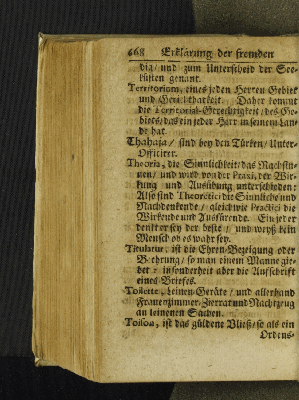 668 Erklärung der fremden
dia/ und zum Unterscheid der See-
küsten genant.
Territorium, eines jeden Herren Gebiet
und Gerichtbarkeit. Daher kommt
die Territorial-Gerechtigkeit/ des Ge-
bietes/ das ein jeder Herr in seinem Lan-
de hat.
Thahaja/ sind bey den Türken/ Unter-
Officirer.
Theoria, die Sinnlichkeit/ das Nachsin-
nen/ und wird von der Praxi, der Wir-
kung und Ausübung unterschieden:
Also sind Theoretici die Sinnliche und
Nachdenkende/ gleichwie Practici die
Wirkende und Ausführende. Ein jeder
denkt er sey der beste/ und weyß kein
Mensch ob es wahr sey.
Titulatur, ist die Ehren-Bezeigung oder
Benehrung/ so man einem Manne gie-
bet: insonderheit aber die Aufschrift
eines Briefes.
Toilette, Leinen-Geräte/ und allerhand
Frauenzimmer-Zierrat und Nachtzeug
an leinenen Sachen.
Toison, ist das güldene Vließ/ so als ein
Ordens-